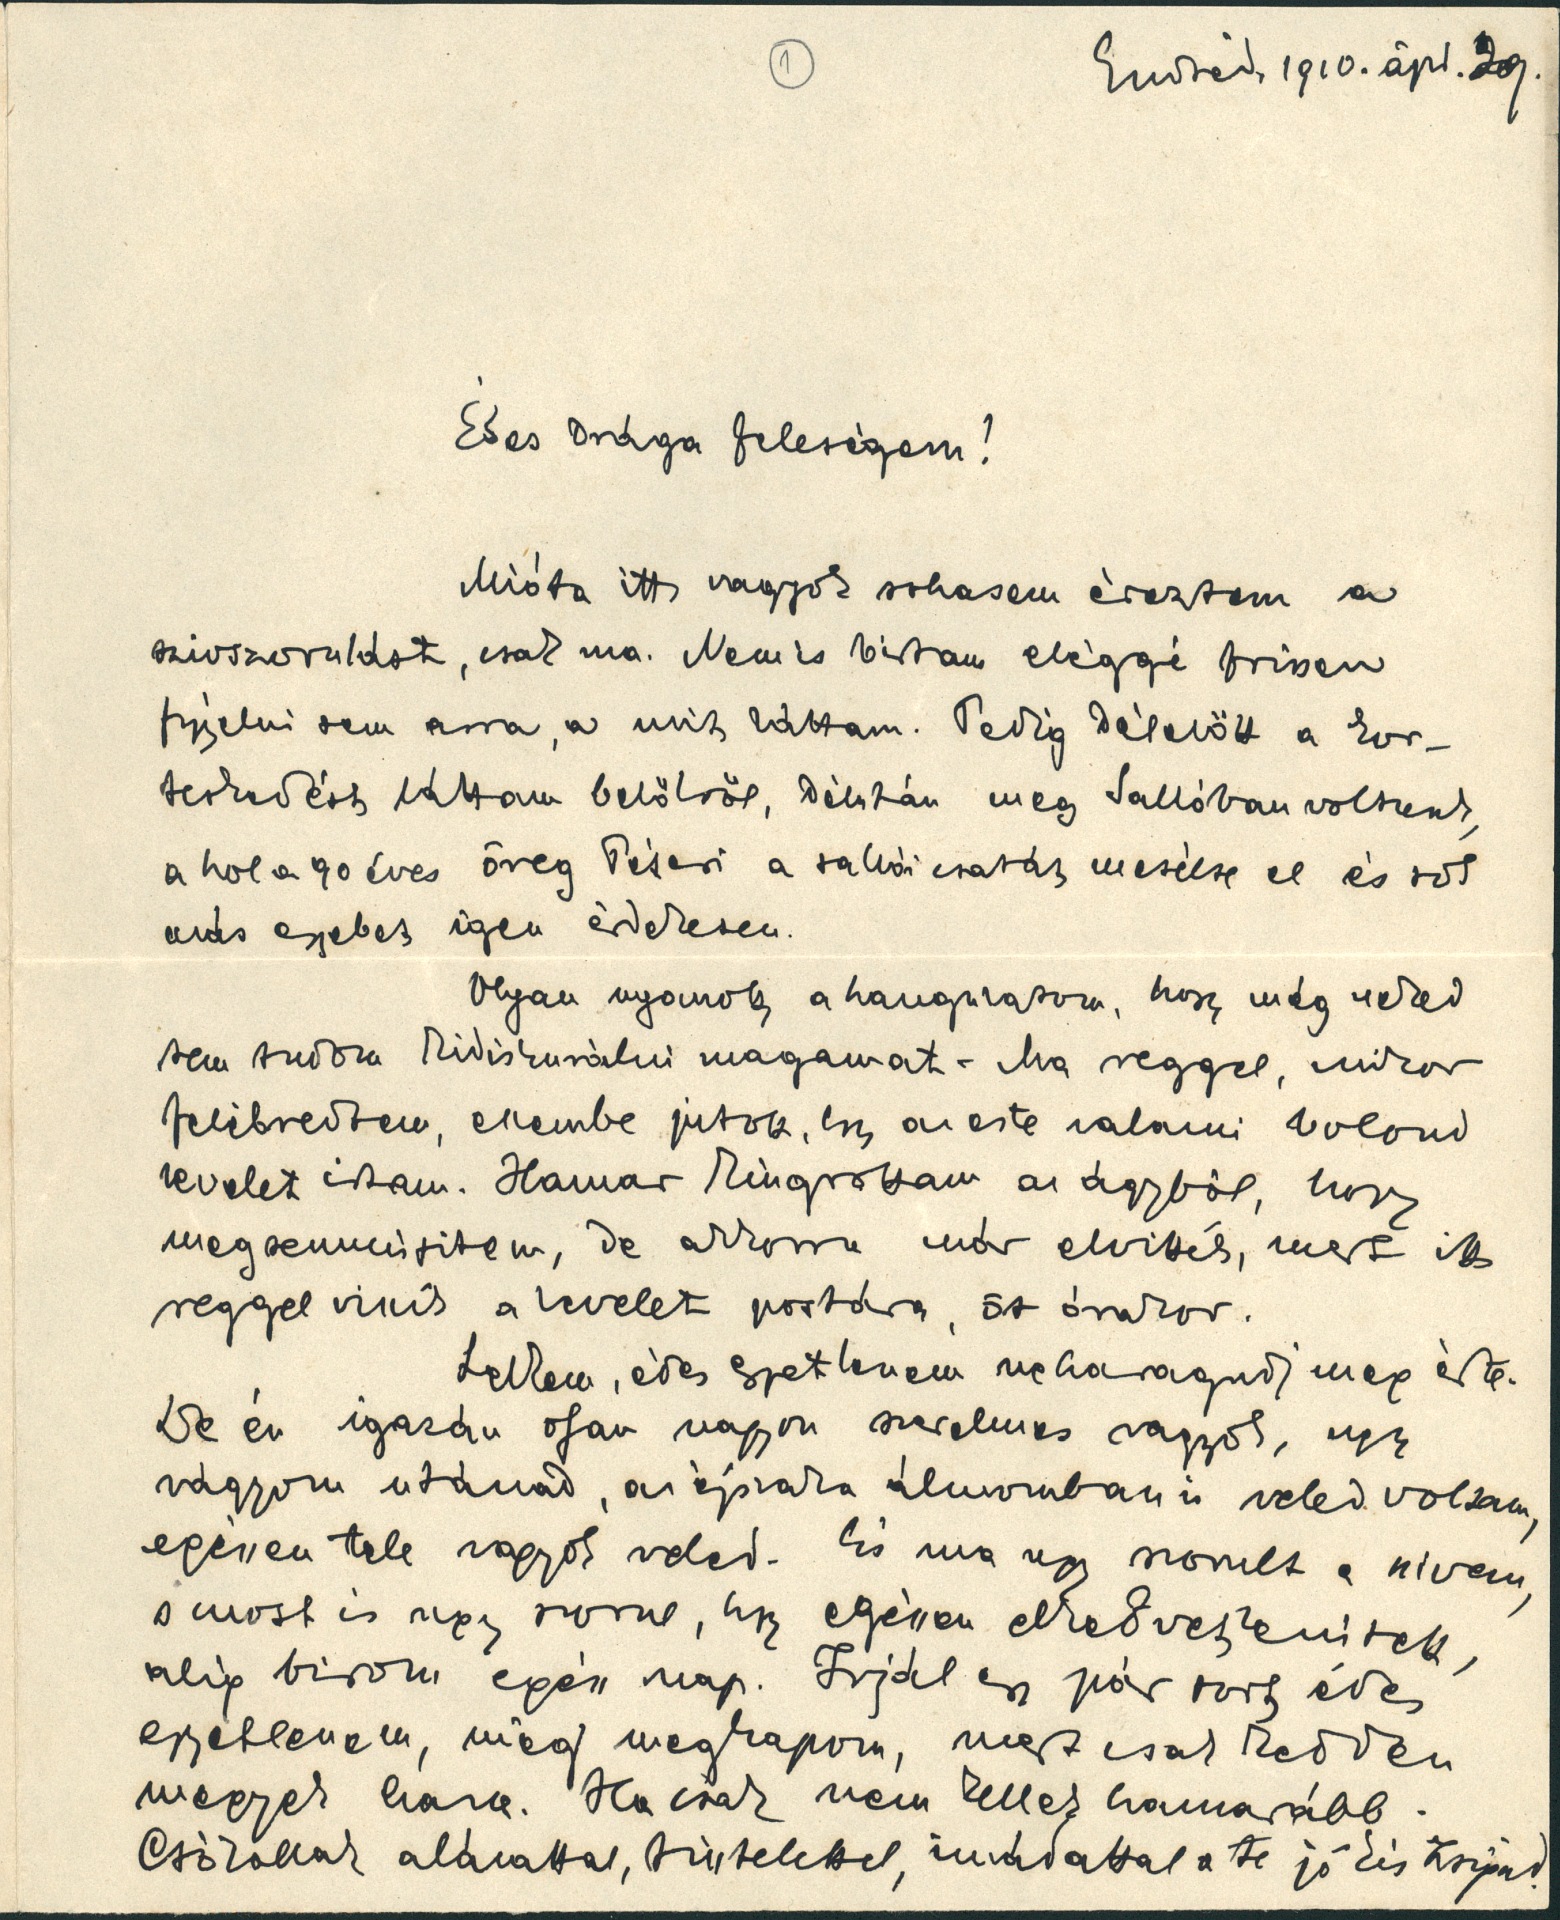 1
Endréd, 1910. ápr. 29.
Édes Drága feleségem!
Mióta itt vagyok sohasem éreztem a
szivszorulást, csak ma. Nem is birtam eléggé frissen
figyelni sem arra, a mit láttam. Pedig délelőtt a kor-
teskedést láttam belölröl, délután meg Sallóban voltunk,
a hol a 90 éves öreg Péseri a sallói csatát mesélte el és sok
más egyebet igen érdekesen.
Olyan nyomott a hangulatom, hogy még neked
sem tudom kidiskurálni magamat. Ma reggel, mikor
felébredtem, eszembe jutott, hogy az este valami bolond
levelet irtam. Hamar kiugrottam az ágyból, hogy
megsemmisitsem, de akkorra már elvitték, mert itt
reggel viszik a levelet postára, öt órakor.
Lelkem, édes egyetlenem ne haragudj meg érte.
De én igazán olyan nagyon szerelmes vagyok, ugy
vágyom utánad, az éjszaka álmomban is veled voltam,
egészen tele vagyok veled. És ma ugy szorult a szivem,
s most is ugy szorul, hogy egészen elkedvetlenitett,
alig birom egész nap. Irjál egy pár sort édes
egyetlenem, még megkapom, mert csak kedden
megyek haza. Ha csak nem kellek hamarább.
Csókollak alázattal, tisztelettel, imádattal a te jó kis